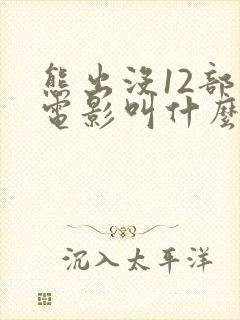 熊出没12部
电影叫什麽
沉入太平洋